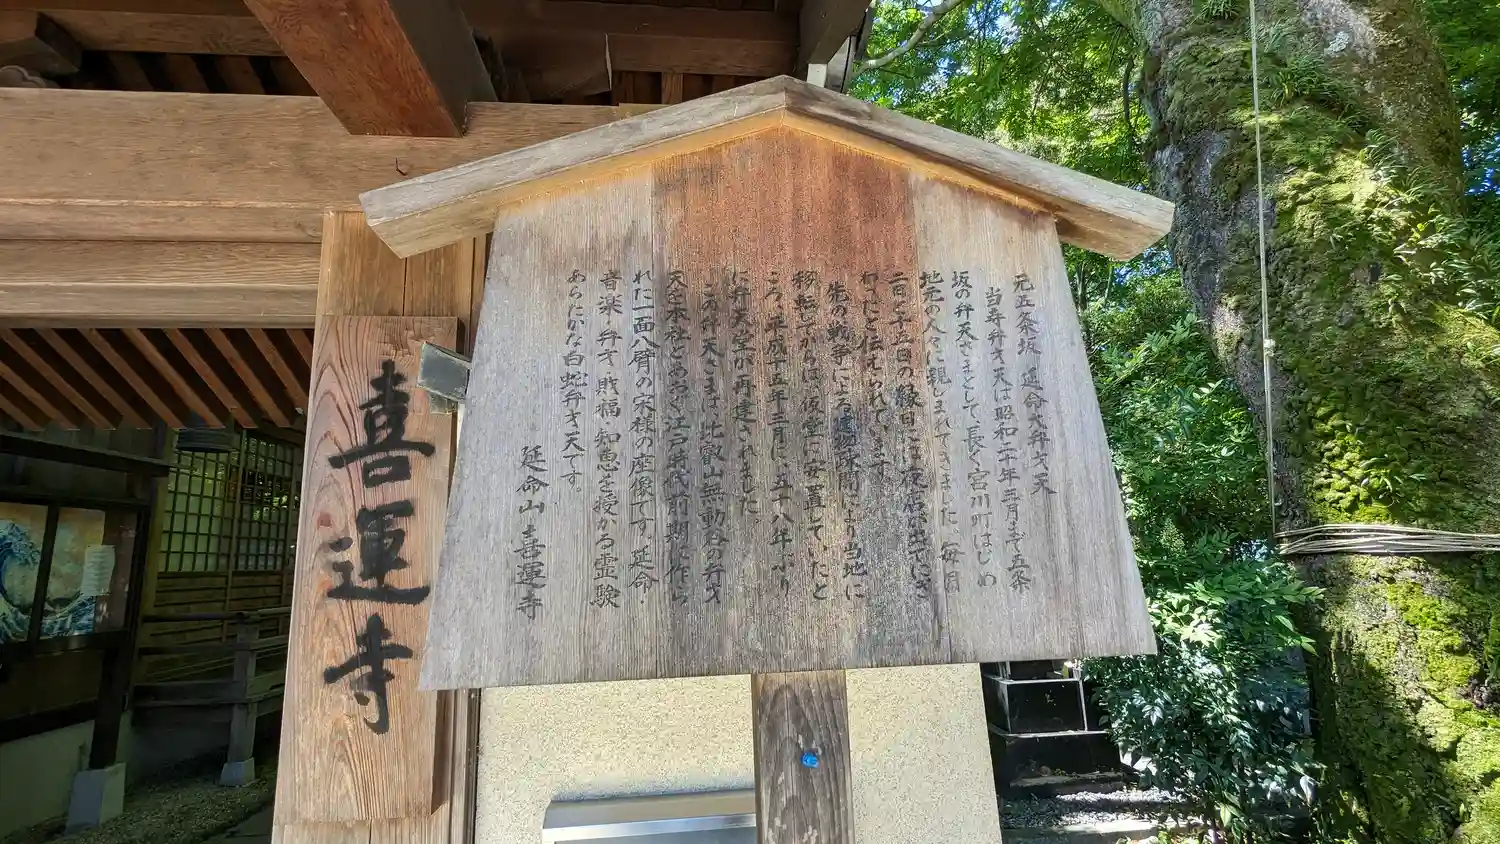 元五条坂 延命大弁才天
当寺弁才天は昭和二十年三月まで五条
坂の弁天さまとして長く宮川町はじめ
地元の人々に親しまれてきました。毎月
二日と十五日の縁日には夜店が出てにぎ
わったと伝えられています
先の戦争による建物疎開により当地に
移転してからは仮堂に安置していたと
ころ、平成十五年三月に、五十八年ぶり
に弁天堂が再建されました。
この弁天さまは、比叡山無動谷の弁才
天を本社とあおぐ江戸時代前期に作ら
れた一面八臂の宋様の座像です。延命・
音楽・弁才・財福・知恵を授かる霊験
あらたかな白蛇弁才天です。
延命山 喜運寺
喜運寺